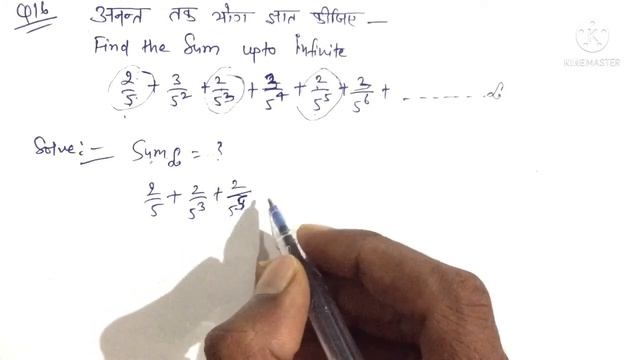 Q16 अनन्त तक योग ज्ञात कीजिए —
Find the Sum upto Infinite
2/5 + 3/5² + 2/5³ + 3/5⁴ + 2/5⁵ + 3/5⁶ + - - - - - - - ∞
Solve:— Sum∞ = ?
2/5 + 2/5³ + 2/5⁵
KINEMASTER